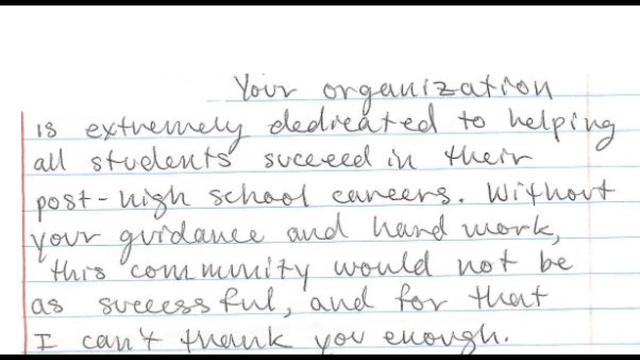 Your organization
is extremely dedicated to helping
all students succeed in their
post-high school careers. Without
your guidance and hard work,
this community would not be
as successful, and for that
I can't thank you enough.